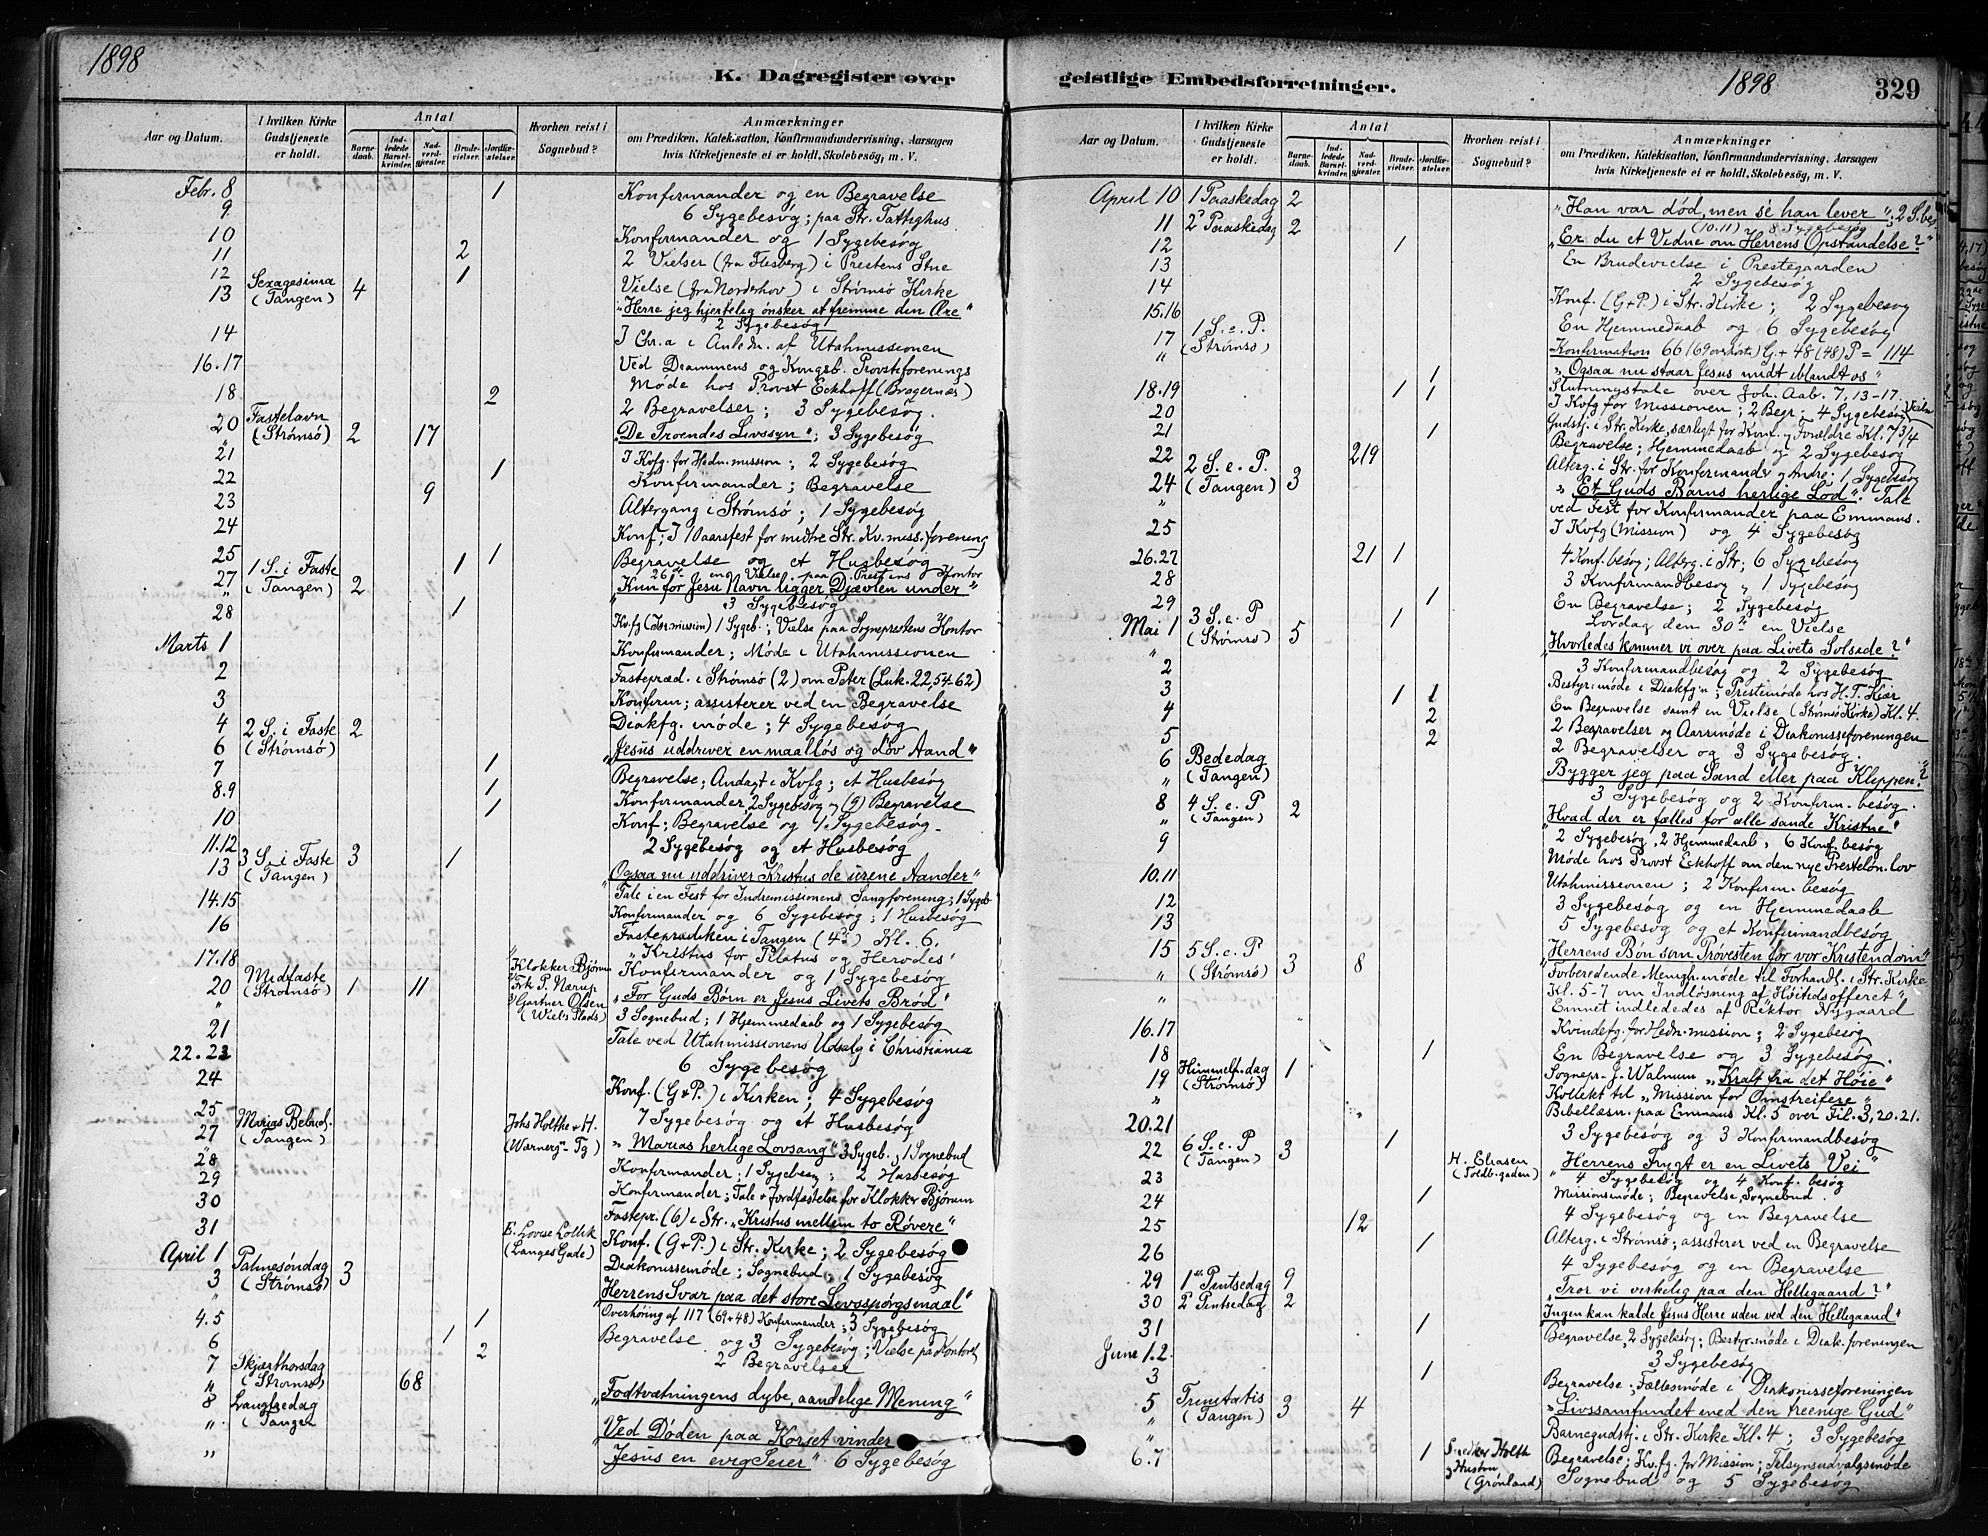 1898
K. Dagregister over
Aar og Datum.
I hvilken Kirke Gudstjeneste er holdt.
Antal
Barnedaab.
Indledede Barselkvinder.
Nadverdgjester.
Brudevielser.
Jordfæstelser.
Hvorhen reist i Sognebud?
Anmærkninger
om Prædiken, Katekisation, Konfirmandundervisning, Aarsagen
hvis Kirketjeneste ei er holdt, Skolebesøg, m. V.
Febr. 8 1 Konfirmander og en Begravelse
9 6 Sygebesøg; paa Str. Fattighus
10 Konfirmander og 1 Sygebesøg
11 2 2 Vielser (fra Flesberg) i Prestens Stue
12 1 Vielse (fra Norderhov) i Strømsø Kirke
13 Sexagesima (Tangen) 4 "Herre jeg hjertelig ønsker at fremme den Ære"
2 Sygebesøg
14 I Chr.a i Anledn. af Utahmissionen
16.17 Ved Drammens og Kongsb. Provstiforenings
Møde hos Provst Eckhoff (Bragernæs)
18 2 2 Begravelser; 3 Sygebesøg.
20 Fastelavn (Strømsø) 2 17 "De Troendes Livssyn"; 3 Sygebesøg
21 I Kvfg. for Hedn. mission; 2 Sygebesøg
22 1 Konfirmander; Begravelse
23 9 Altergang i Strømsø; 1 Sygebesøg
24 Konf; I Aarsfest for midtre Str. Kv. miss. forening
25 1 1 Begravelse og et Husbesøg
26de en Vielse paa Prestens Kontor
27 1 S. i Faste (Tangen) 2 "Kun for Jesu Navn ligger Djævlen under"
3 Sygebesøg
28 1 Kvfg (Isr mission) 1 Sygeb.; Vielse paa Sogneprestens Kontor
Marts 1 Konfirmander; Møde i Utahmissionen
2 Fastepræd. i Strømsø (2) om Peter (Luk. 22, 54-62)
3 Konfirm; assisterer ved en Begravelse
4 Diakfg. møde; 4 Sygebesøg
6 2 S. i Faste (Strømsø) 2 "Jesus uddriver en maalløs og døv Aand"
7 1 Begravelse; Andagt i Kvfg; et Husbesøg
8.9 1 Konfirmander 2 Sygebesøg og (9) Begravelse
10 1 Konf; Begravelse og 1 Sygebesøg
11.12 2 Sygebesøg og et Husbesøg
13 3 S. i Faste (Tangen) 3 1 "Ogsaa nu uddriver Kristus de urene Aander"
Tale i en Fest for Indremissionens Sangforening; 1 Sygeb
14.15 Konfirmander og 6 Sygebesøg; 1 Husbesøg
16 Fasteprædiken i Tangen (4de) Kl. 6.
"Kristus for Pilatus og Herodes"
17.18 Konfirmander og 1 Sygebesøg
20 Midfaste (Strømsø) 1 11 Klokker Bjørum Frk P. Nærup Gartner Olsen (Wiels Plads) "For Guds Børn er Jesus Livets Brød"
3 Sognebud; 1 Hjemmedaab og 1 Sygebesøg
21 Tale ved Utahmissionens Udsalg i Christiania
22.23 6 Sygebesøg
24 Konf. (G+P.) i Kirken; 4 Sygebesøg
25 7 Sygebesøg og et Husbesøg
27 Marias Bebud. (Tangen) Johs Holthe + H. (Warnerg - Tg) "Marias herlige Lovsang" 3 Sygeb., 1 Sognebud
28 Konfirmander; 1 Sygebesøg; 2 Husbesøg
29 Konfirmander; Tale + Jordfæstelse for Klokker Bjørum
30 Fastepr. (6) i Str. "Kristus mellem to Røvere"
31 E. Lovise Lollik (Langes Gade) Konf. (G+P.) i Str. Kirke; 2 Sygebesøg
April 1 Diakonissemøde; Sognebud; 1 Sygebesøg
3 Palmesøndag (Strømsø) 3 "Herrens Svar paa det store Livsspørgsmaal"
Overhøring af 117 (69+48) Konfirmander; 3 Sygebesøg
4.5 1 Begravelse og 3 Sygebesøg; Vielse paa Kontoret
6 1 2 2 Begravelser
7 Skjærthorsdag (Strømsø) 68 "Fodtvætningens dybe, aandelige Mening"
8 Langfredag (Tangen "Ved Døden paa Korset vinder
Jesus en evig Seier" 6 Sygebesøg
geistlige Embedsforretninger.
1898
329
Aar og Datum.
I hvilken Kirke Gudstjeneste er holdt.
Antal
Barnedaab.
Indledede Barselkvinder.
Nadverdgjester.
Brudevielser.
Jordfæstelser.
Hvorhen reist i Sognebud?
Anmærkninger
om Prædiken, Katekisation, Konfirmandundervisning, Aarsagen
hvis Kirketjeneste ei er holdt, Skolebesøg, m. V.
April 10 1 Paaskedag 2 "Han var død, men se han lever"; 2 S.bes.
(10.11) 8 Sygebesøg
11 2 Paaskedag 2 "Er du et Vidne om Herrens Opstandelse?"
12 1 En Brudevielse i Prestegaarden
13 2 Sygebesøg
14 Konf. (G+P.) i Str. Kirke; 2 Sygebesøg
15.16 En Hjemmedaab og 6 Sygebesøg
17 1 S. e. P. (Strømsø) Konfirmation 66 (69 overhørte) G + 48 (48) P = 114
" 1 "Ogsaa nu staar Jesus midt iblandt os"
Slutningstale over Joh. Aab. 7, 13-17.
18.19 1 1 I Kvfg for Missionen; 2 Begr. 4 Sygebesøg Vielse
20 Gudstj. i Str. Kirke, særligt for Konf. og Forældre Kl. 7 3/4
21 1 Begravelse; Hjemmedaab og 2 Sygebesøg
22 219 Alterg. i Str. for Konfirmander og Andre; 1 Sygebesøg
24 2 S. e. P. (Tangen) 3 "Et Guds Barns herlige Lod". Tale
ved Fest for Konfirmander paa Emmaus.
25 I Kvfg (Mission) og 4 Sygebesøg
26.27 21 1 4 Konf. besøg; Alterg. i Str; 6 Sygebesøg
28 3 Konfirmandbesøg, 1 Sygebesøg
29 1 En Begravelse; 2 Sygebesøg
1 Lørdag den 30te en Vielse
Mai 1 3 S. e. P (Strømsø) 5 "Hvorledes kommer vi over paa Livets Solside?"
3 Konfirmandbesøg og 2 Sygebesøg
2 Bestyr. møde i Diakfg'n; Prestemøde hos H. T. Kiær
3 1 1 En Begravelse samt en Vielse (Strømsø Kirke) Kl. 4.
4 2 2 Begravelser og Aarsmøde i Diakonisseforeningen
5 2 2 Begravelser og 3 Sygebesøg.
6 Bededag (Tangen) "Bygger jeg paa Sand eller paa Klippen?"
3 Sygebesøg og 2 Konfirm. besøg.
8 4 S. e. P (Tangen) 2 "Hvad der er fælles for alle sande Kristne"
2 Sygebesøg, 2 Hjemmedaab, 6 Konf. besøg
9 Møde hos Provst Eckhoff om den nye Prestelønlov
10.11 Utahmissionen; 2 Konfirm. besøg
12 3 Sygebesøg og en Hjemmedaab
13 5 Sygebesøg og et Konfirmandbesøg
15 5 S. e. P (Strømsø) 3 8 "Herrens Bøn som Prøvesten for vor Kristendom"
Forberedende Menigh. møde til Forhandl. i Str. Kirke
Kl. 5-7 om Indløsning af "Høitidsofferet"
Emnet indledes af Rektor Nygaard
16.17 Kvindefg. for Hedn. mission; 2 Sygebesøg
18 1 En Begravelse og 3 Sygebesøg.
19 Himmelf. dag (Strømsø) 1 Sognepr. J. Walnum "Kraft fra det Høie"
Kollekt til "Mission for Omstreifere"
Bibellæsn. paa Emmaus Kl. 5 over Fil. 3, 20.21.
20.21 1 3 Sygebesøg og 3 Konfirmandbesøg
22 6 S. e. P (Tangen) 3 "Herrens Frygt er en Livets Vei"
4 Sygebesøg og 4 Konf. besøg
23 H. Eliasen (Toldb. gaden) Missionsmøde; Begravelse, Sognebud.
24 1 4 Sygebesøg og en Begravelse
25 12 Alterg. i Strømsø; assisterer ved en Begravelse
26 1 4 Sygebesøg og en Begravelse
29 1ste Pintsedag 9 "Tror vi virkelig paa den Helligaand?"
30 2 Pintsedag 2 "Ingen kan kalde Jesus Herre uden ved den Helligaand"
31 1 Begravelse, 2 Sygebesøg; Bestyr. møde i Diak. foreningen
Juni 1.2. 3 Sygebesøg
3 1 Begravelse. Fællesmøde i Diakonisseforeningen
5 Trinitatis (Tangen) 3 4 "Livssamfundet med den treenige Gud"
Barnegudstj. i Str. Kirke Kl. 4; 3 Sygebesøg
6.7 1 Snedker Holth Hustru (Grønland) Begravelse; Kv. fg. for Mission; Tilsynsudvalgsmøde
Sognebud og 5 Sygebesøg